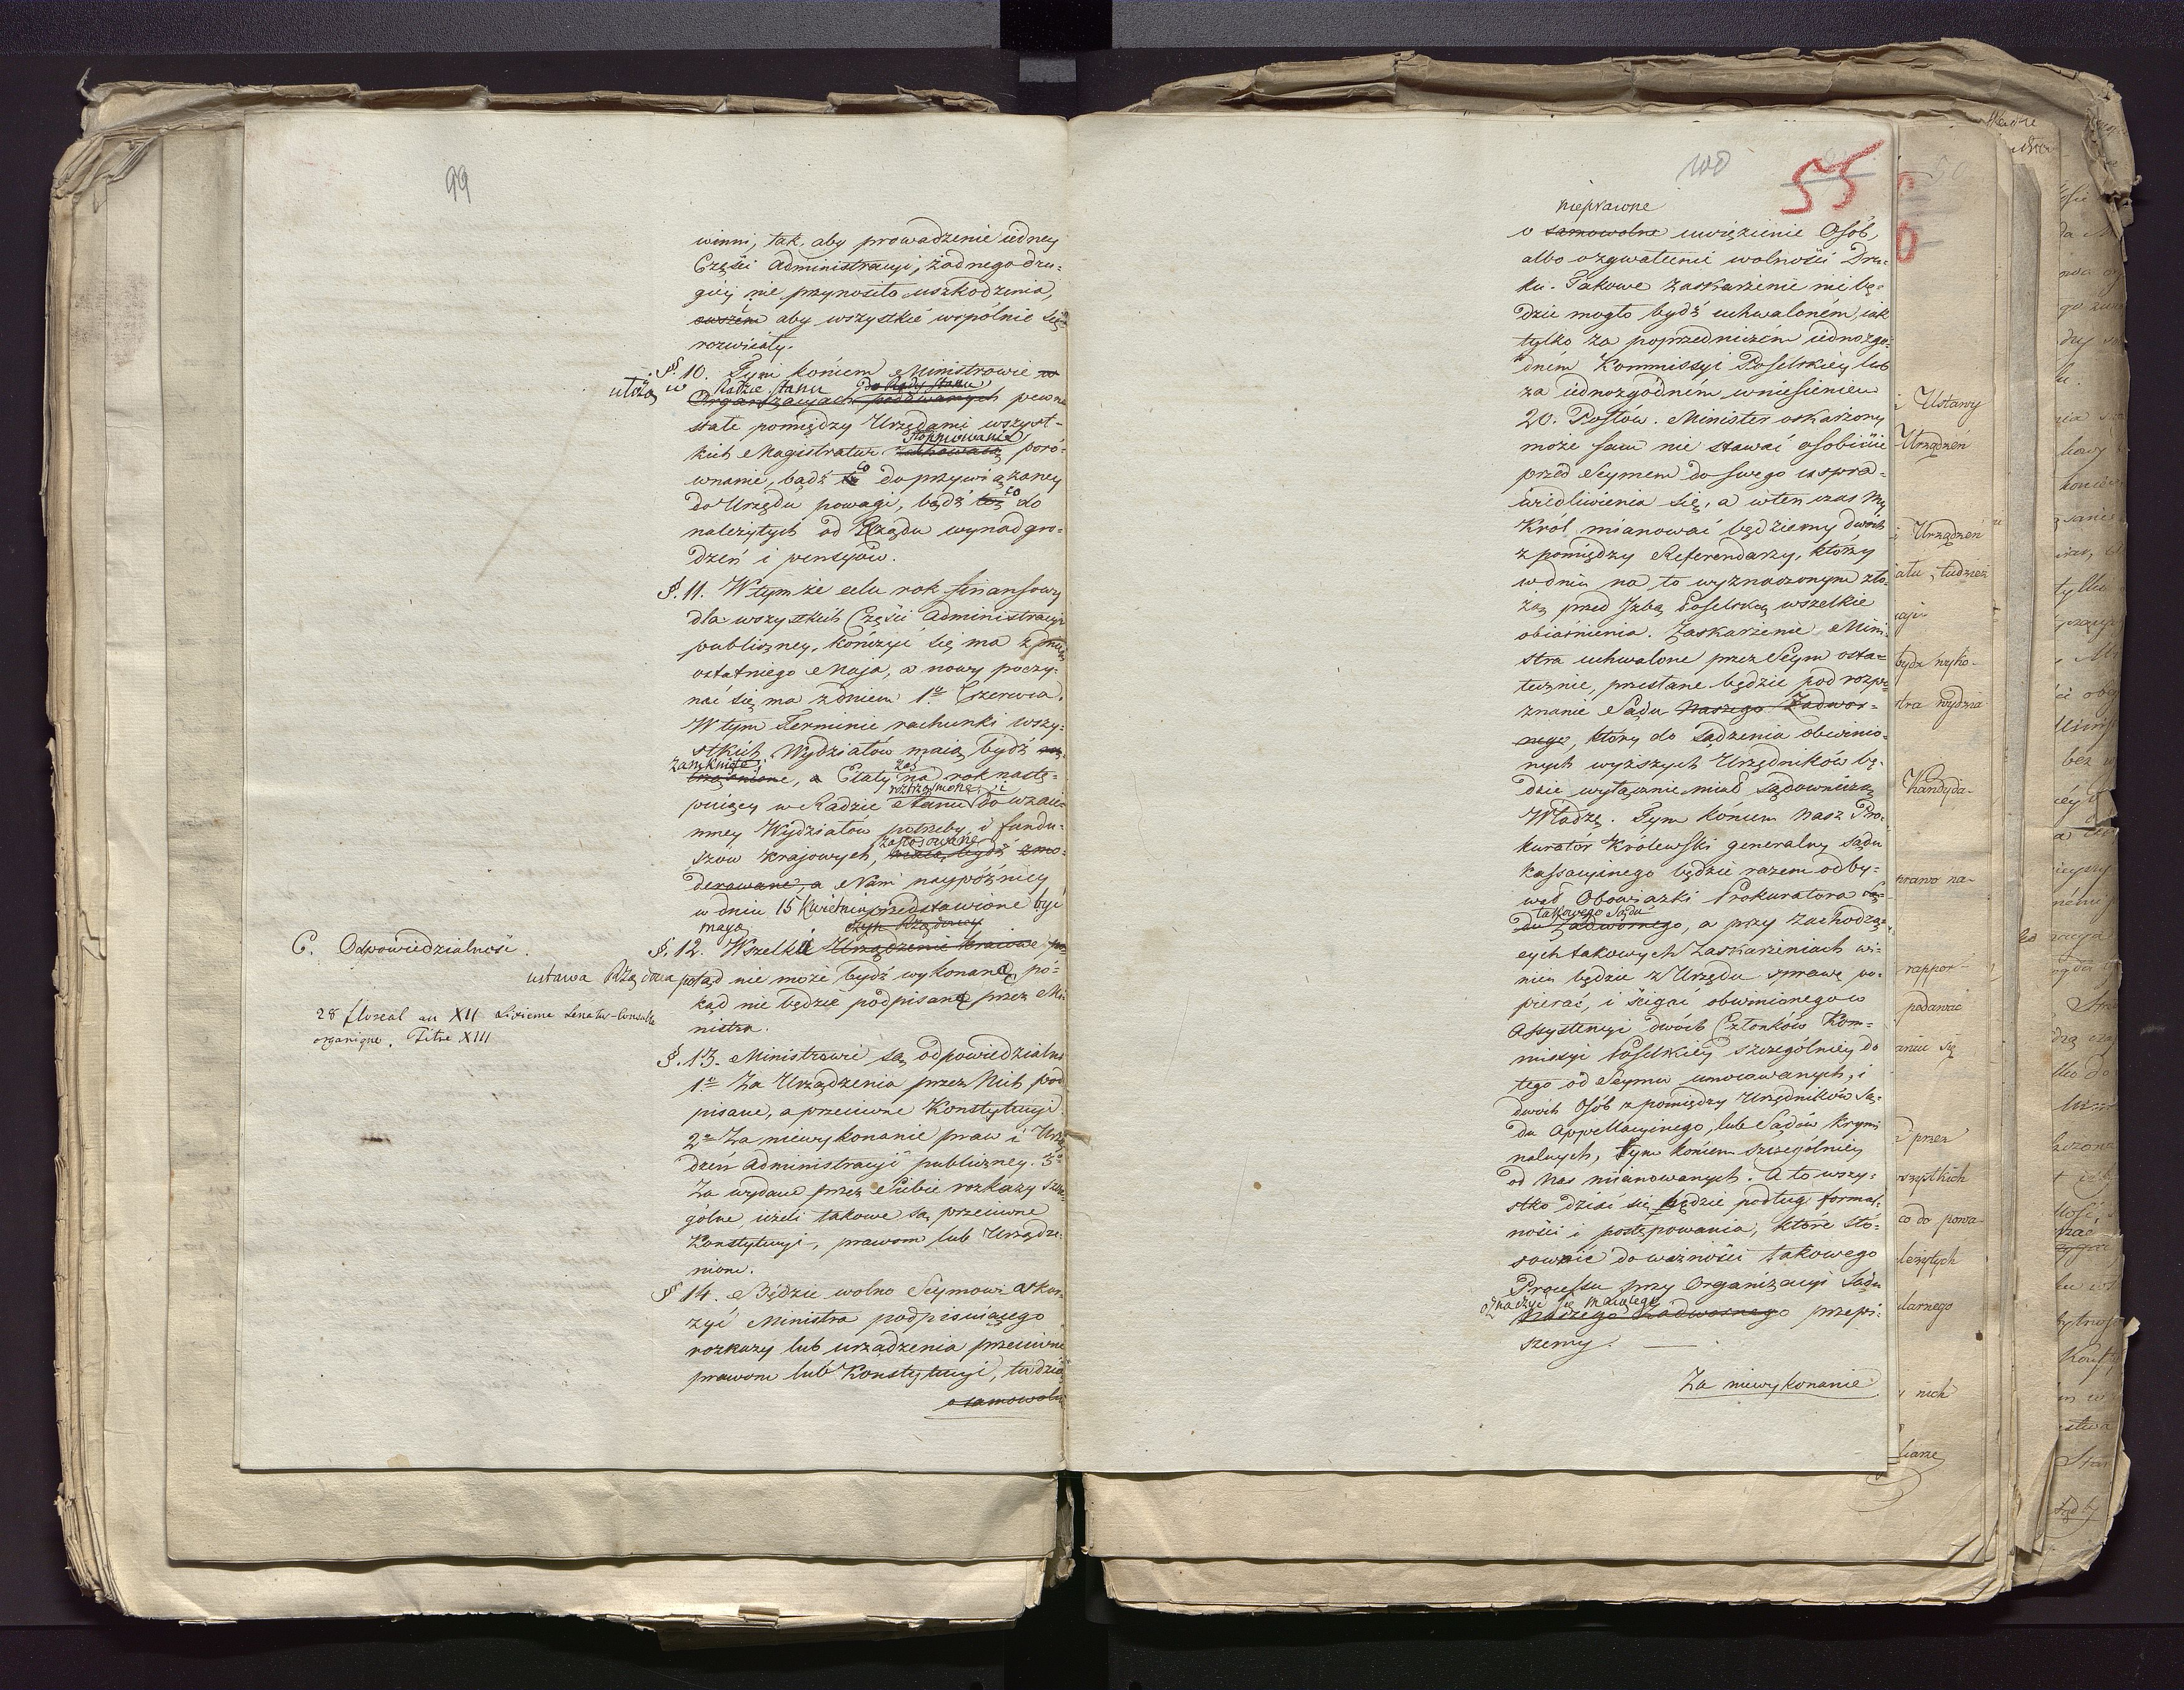 99
winni, tak, aby prowadzenie iedney
Części Administracyi, żadnego dru-
giéj nie przynosiło uszkodzenia,
owszém aby wszystkié wspólnie się
rozwiiały.
§. 10. Tym końcem Ministrowie w
ułożą w Radzie stanu do Rady stanu
Organizacyach podawanych pewne
stałe pomiędzy Urzędami wszyst-
Stopniowanie
kich Magistratur zachowaią poró-
co
wnanie, bądź to do przywiązaney
co
do Urzędu powagi, bądź też do
należytych od Rządu wynadgro-
dzeń i pensyów.
§. 11. W tym że celu rok finansowy
dla wszystkich Części Administracyi
publiczney, kończyć się ma z dniem
ostatniego Maja, a nowy poczy-
nać się ma z dniem 1o Czerwca.
W tym Terminie rachunki wszy-
stkich Wydziałów maią bydź
zamknięte, zaś
a Etaty na rok nastę-
roztrząśnione, i
puiący w Radzie Stanu do wzaie-
mney Wydziałów potrzeby i fundu-
zastosowane
szów krajowych, maią bydź zmo-
derowane, a Nam naypóźniey
w dniu 15 Kwietnia przedstawione być
mayą czyn Rządowy
C. Odpowiedzialność.
§. 12. Wszelka Urządzenie kraiowe po-
ustawa Rządowa potąd nie może bydź wykonaną, pó-
kąd nie będzie podpisaną przez Mi-
28 floréal an XII Sixieme Senatus-Consulte
nistra.
organique. Titre XIII
§. 13. Ministrowie są odpowiedzialni
1o Za Urządzenia przez Nich pod-
pisane, a przeciwne Konstytucyi.
2o Za niewykonanie praw i Urzą-
dzeń Administracyi publiczney. 3o
Za wydane przez Siebie rozkazy szcze-
gólne, iżeli takowe są przeciwne
Konstytucyi, prawom lub Urządze-
niom.
§ 14. Będzie wolno Seymowi oskar-
żyć Ministra podpisuiącego
rozkazy lub urządzenia przeciwne
prawom lub Konstytucyi, tudzież
o samowolne
100
55
nieprawne
o samowolne uwięzienie Osób,
albo ożywałeenie wolności Dru-
ku. Takowe zaskarżenie nie bę-
dzie mogło bydź uchwaloném, iak
tylko za poprzedniczém iednozgo-
dném Kommissyi Poselskiéy lub
za iednozgodném wniesieniem
20. Posłów. Minister oskarżony
może sam nie stawać osobiście
przed Seymem do swego uspra-
wiedliwienia się, a wten czas My
Król mianować będziemy dwóch
z pomiędzy Referendarzy, którzy
w dniu na to wyznaczonym zło-
żą przed Izbą Poselską wszelkie
obiaśnienia. Zaskarżenie Mini-
stra uchwalone przez Seym osta-
tecznie, przesłane będzie pod rozpo-
znanie Sądu Naszego Zadwor-
nego, który do sądzenia obwinio-
nych wyższych Urzędników bę-
dzie wyłącznie miał sądowniczą
Władzę. Tym końcem Nasz Pro-
kurator Królewski generalny sądu
kassacyinego będzie razem odby-
wał Obowiązki Prokuratora Są-
takowego Sądu
du Zadwornego, a przy zachodzą-
cych takowych Zaskarżeniach wi-
nien będzie z Urzędu sprawę po-
pierać, i ścigać obwinionego w
Assystencyi dwóch Członków Kom-
missyi Poselskiéy szczególniey do
tego od Seymu umocowanych, i
dwóch Osób z pomiędzy Urzędników Są-
du Appellacyinego, lub Sądów Krymi-
nalnych, tym końcem szczególniey
od Nas mianowanych. A to wszy-
stko dziać się będzie podług formal-
ności i postępowania, które sto-
sownie do ważności takowego
Processu przy Organizacyi Sądu
oznaczyć się maiącego
Naszego Zadwornego przepi-
szemy.
Za niewykonanie
Ustawy
Urządzeń
Urządzeń
tudzież
Kandyda-
prawo na-
rappor-
podawać
przez
wszystkich
co do powa-
nich